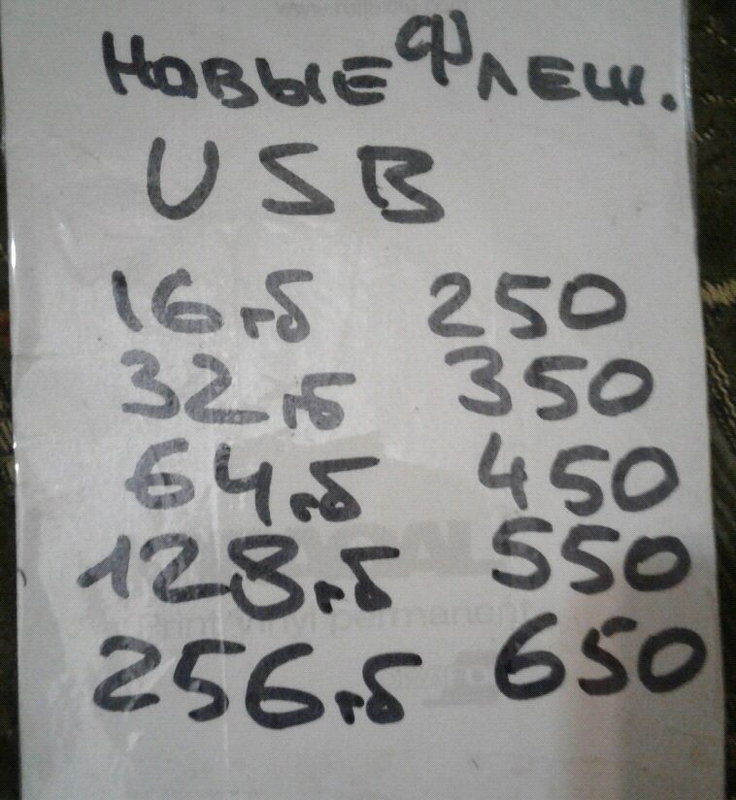 НОВЫЕ ФЛЕШ.
USB
16 гб 250
32 гб 350
64 гб 450
128 гб 550
256 гб 650